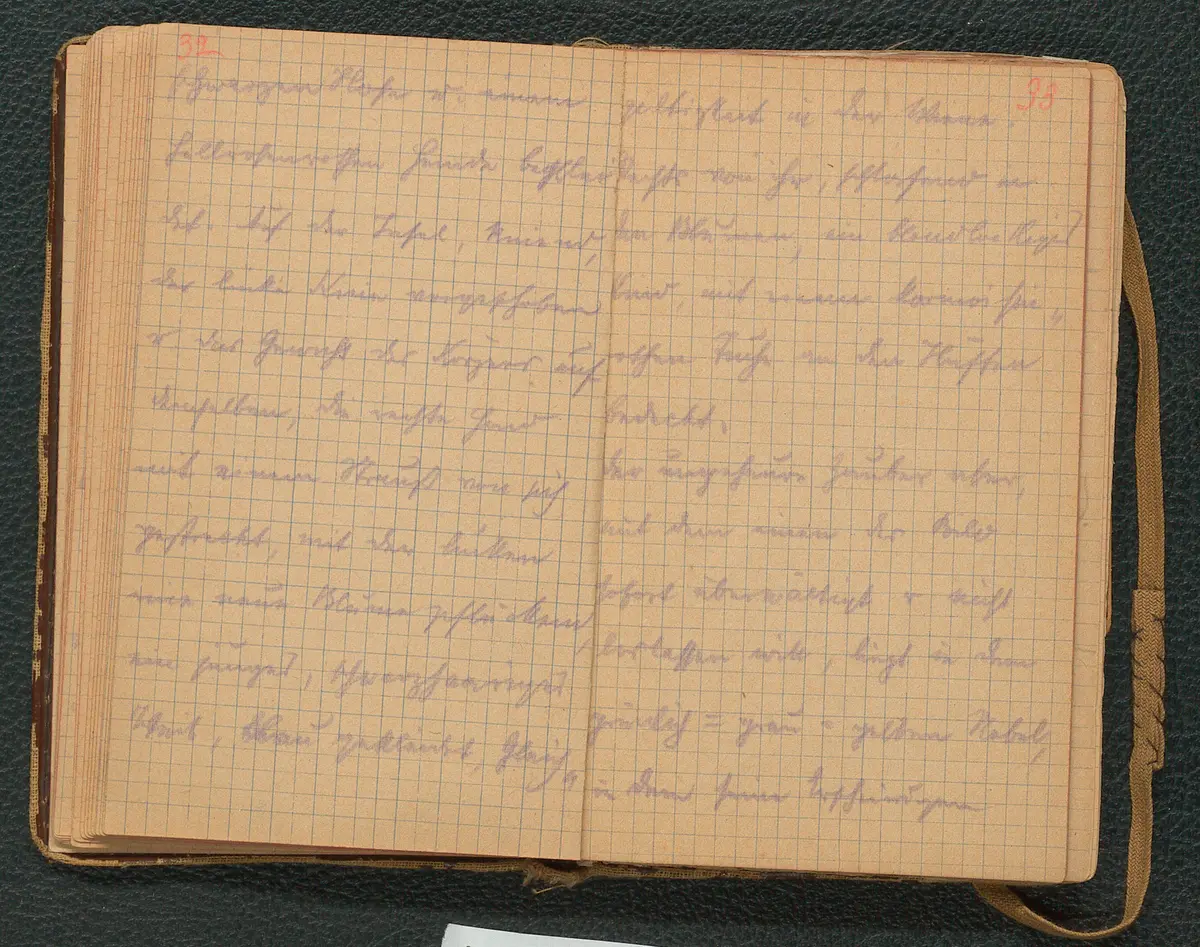 32
schwarzen Hose u. einem
hellrosenrothen Hemde beklei
det. Auf der Tafel, kniend,
das linke Knie vorgeschoben
u. das Gewicht des Körpers auf
demselben, die rechte Hand
mit einem Strauß von sich
gestreckt, mit der linken
eine neue Blume pflückend,
ein junges, schwarzhaariges
Weib, blau gekleidet, Gleich„
33
giltigkeit in der Miene.
Rechts von ihr, schlafend in
den Blumen, ein blondlockiges
Kind, mit einem karmoisin„
rothen Tuche an den Hüften
bedeckt.
Der ungeheure Zauber aber,
mit dem einen das Bild
sofort überwältigt u nicht
loslassen will, liegt in dem
grünlich = grau = gelben Nebel,
in dem seine Erscheinungen